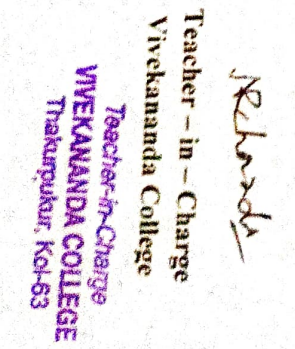 Teacher – in – Charge
Vivekananda College
Teacher-in-Charge
VIVEKANANDA COLLEGE
Thakurpukur, Kol-63